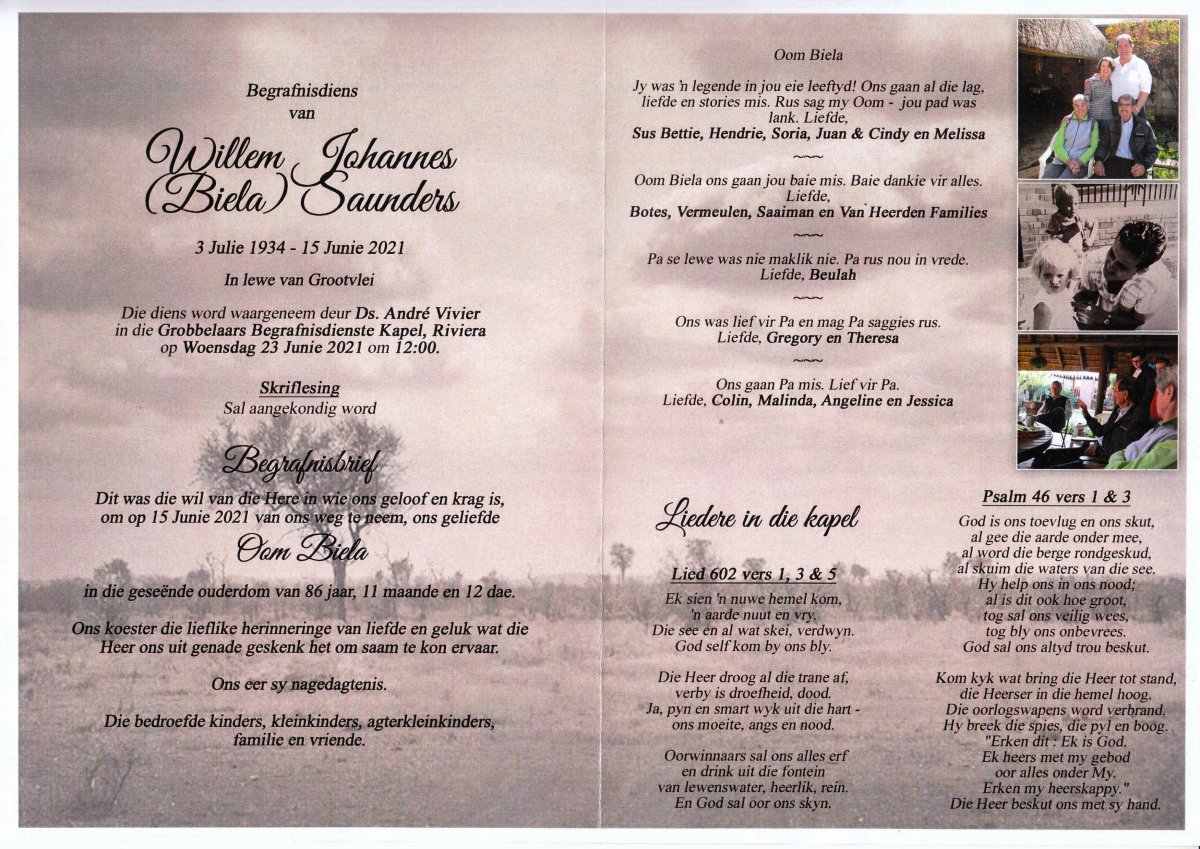 Begrafnisdiens
van
Willem Johannes
(Biela) Saunders
3 Julie 1934 - 15 Junie 2021
In lewe van Grootvlei
Die diens word waargeneem deur Ds. André Vivier
in die Grobbelaars Begrafnisdienste Kapel, Riviera
op Woensdag 23 Junie 2021 om 12:00.
Skriflesing
Sal aangekondig word
Begrafnisbrief
Dit was die wil van die Here in wie ons geloof en krag is,
om op 15 Junie 2021 van ons weg te neem, ons geliefde
Oom Biela
in die geseënde ouderdom van 86 jaar, 11 maande en 12 dae.
Ons koester die lieflike herinneringe van liefde en geluk wat die
Heer ons uit genade geskenk het om saam te kon ervaar.
Ons eer sy nagedagtenis.
Die bedroefde kinders, kleinkinders, agterkleinkinders,
familie en vriende.
Oom Biela
Jy was 'n legende in jou eie leeftyd! Ons gaan al die lag,
liefde en stories mis. Rus sag my Oom - jou pad was
lank. Liefde,
Sus Bettie, Hendrie, Soria, Juan & Cindy en Melissa
~~~
Oom Biela ons gaan jou baie mis. Baie dankie vir alles.
Liefde,
Botes, Vermeulen, Saaiman en Van Heerden Families
~~~
Pa se lewe was nie maklik nie. Pa rus nou in vrede.
Liefde, Beulah
~~~
Ons was lief vir Pa en mag Pa saggies rus.
Liefde, Gregory en Theresa
~~~
Ons gaan Pa mis. Lief vir Pa.
Liefde, Colin, Malinda, Angeline en Jessica
Liedere in die kapel
Lied 602 vers 1, 3 & 5
Ek sien 'n nuwe hemel kom,
'n aarde nuut en vry.
Die see en al wat skei, verdwyn.
God self kom by ons bly.
Die Heer droog al die trane af,
verby is droefheid, dood.
Ja, pyn en smart wyk uit die hart -
ons moeite, angs en nood.
Oorwinnaars sal ons alles erf
en drink uit die fontein
van lewenswater, heerlik, rein.
En God sal oor ons skyn.
Psalm 46 vers 1 & 3
God is ons toevlug en ons skut,
al gee die aarde onder mee,
al word die berge rondgeskud,
al skuim die waters van die see.
Hy help ons in ons nood;
al is dit ook hoe groot,
tog sal ons veilig wees,
tog bly ons onbevrees.
God sal ons altyd trou beskut.
Kom kyk wat bring die Heer tot stand,
die Heerser in die hemel hoog.
Die oorlogswapens word verbrand,
Hy breek die spies, die pyl en boog.
"Erken dit : Ek is God.
Ek heers met my gebod
oor alles onder My.
Erken my heerskappy."
Die Heer beskut ons met sy hand.